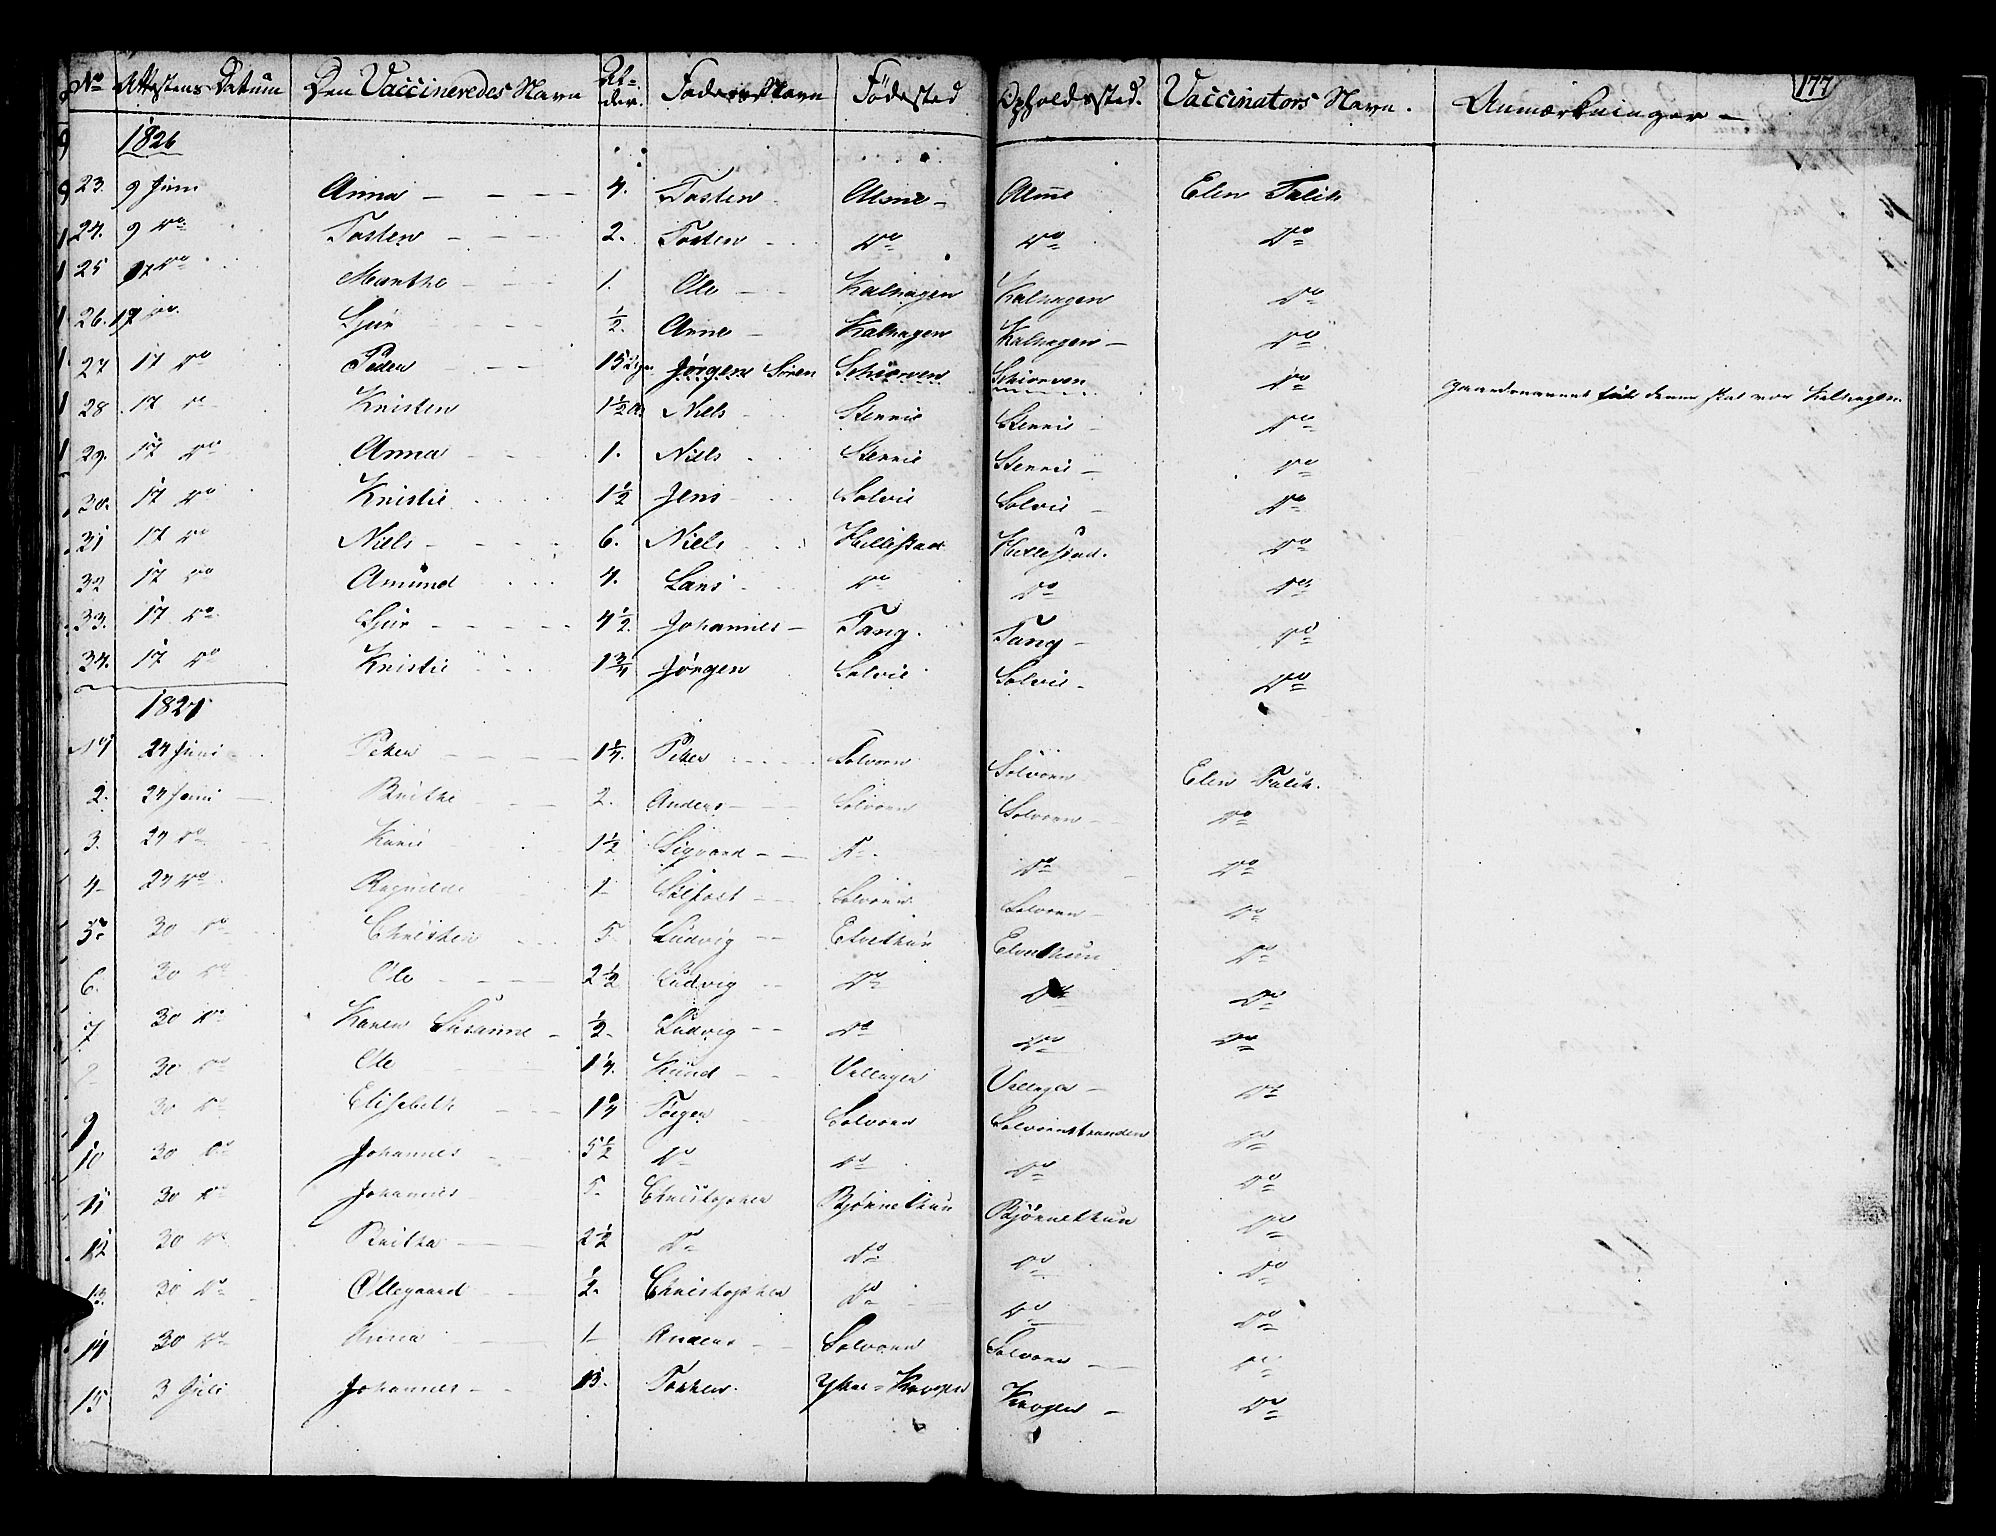 177
No Attestens Datum Den Vaccineredes Navn Alder. Faderens Navn Fødested Opholdssted. Vaccinators Navn. Anmærkninger –
1826
23. 9 Juni Anna 4. Tosten Alme Alme Elen Talie
24. 9 do Tosten 2. Tosten do do do
25 17 do Marthe 1. Ole Kalhagen Kalhagen do
26. 17 do Sjur ½. Arne Kalhagen Kalhagen do
27 17 do Peder Jørgen Sören Schiorven Schiorven do
28 17 do Kristen 1½ Niels Stenne Stenne do
29. 17 do Anna 1. Niels Stenne Stenne do
30. 17 do Kristie 1½ Jens Solvie Solvie do
31 17 do Niels 6. Niels Hillestad Hillestad. do
32 17 do Amund 4. Lars do do do
33. 17 do Sjur 4½ Johannes Tang. Tang do
34. 17 do Kristie 1¾ Jörgen Solvie Solvie do
1827
No 1 24 Juni Peter 1¼. Peter Solvorn Solvorn Elen Talie.
2. 24 Juni Brithe 2. Anders Solvorn Solvorn do
3. 24 do Kari 1½ Sigvard do do do
4 24 do Ragnilde 1 Solfest Solvorn Solvorn do
5. 30 do Christen 5 Ludvig Elvethun Elvethun do
6. 30 do Ole 2½ Ludvig do do do
7 30 do Karen Susanne ½ Ludvig do do do
8 30 do Ole 1¼. Knud Vallagen do
9 30 do Elisabeth 1¼ Torger Solvorn Solvornstranden do
10 30 do Johannes 5½ do do do do
11 30 do Johannes 5. Christopher Bjørnethun Bjørnethun do
12 30 do Britha 2½ do do do do
13. 30 do Ollegaard ½. Christopher do do do
14 30 do Anna 1 Anders Solvorn Solvorn do
15 3 Juli Johannes 13. Torsten. Krogen Krogen do